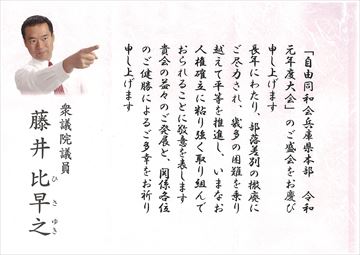 「自由同和会兵庫県本部　令和
元年度大会」のご盛会をお慶び
申し上げます
長年にわたり、部落差別の撤廃に
ご尽力され、幾多の困難を乗り
越えて平等を推進し、いまなお
人権確立に粘り強く取り組んで
おられることに敬意を表します
貴会の益々のご発展と、関係各位
のご健勝によるご多幸をお祈り
申し上げます
衆議院議員
藤井 比早之
ひさゆき